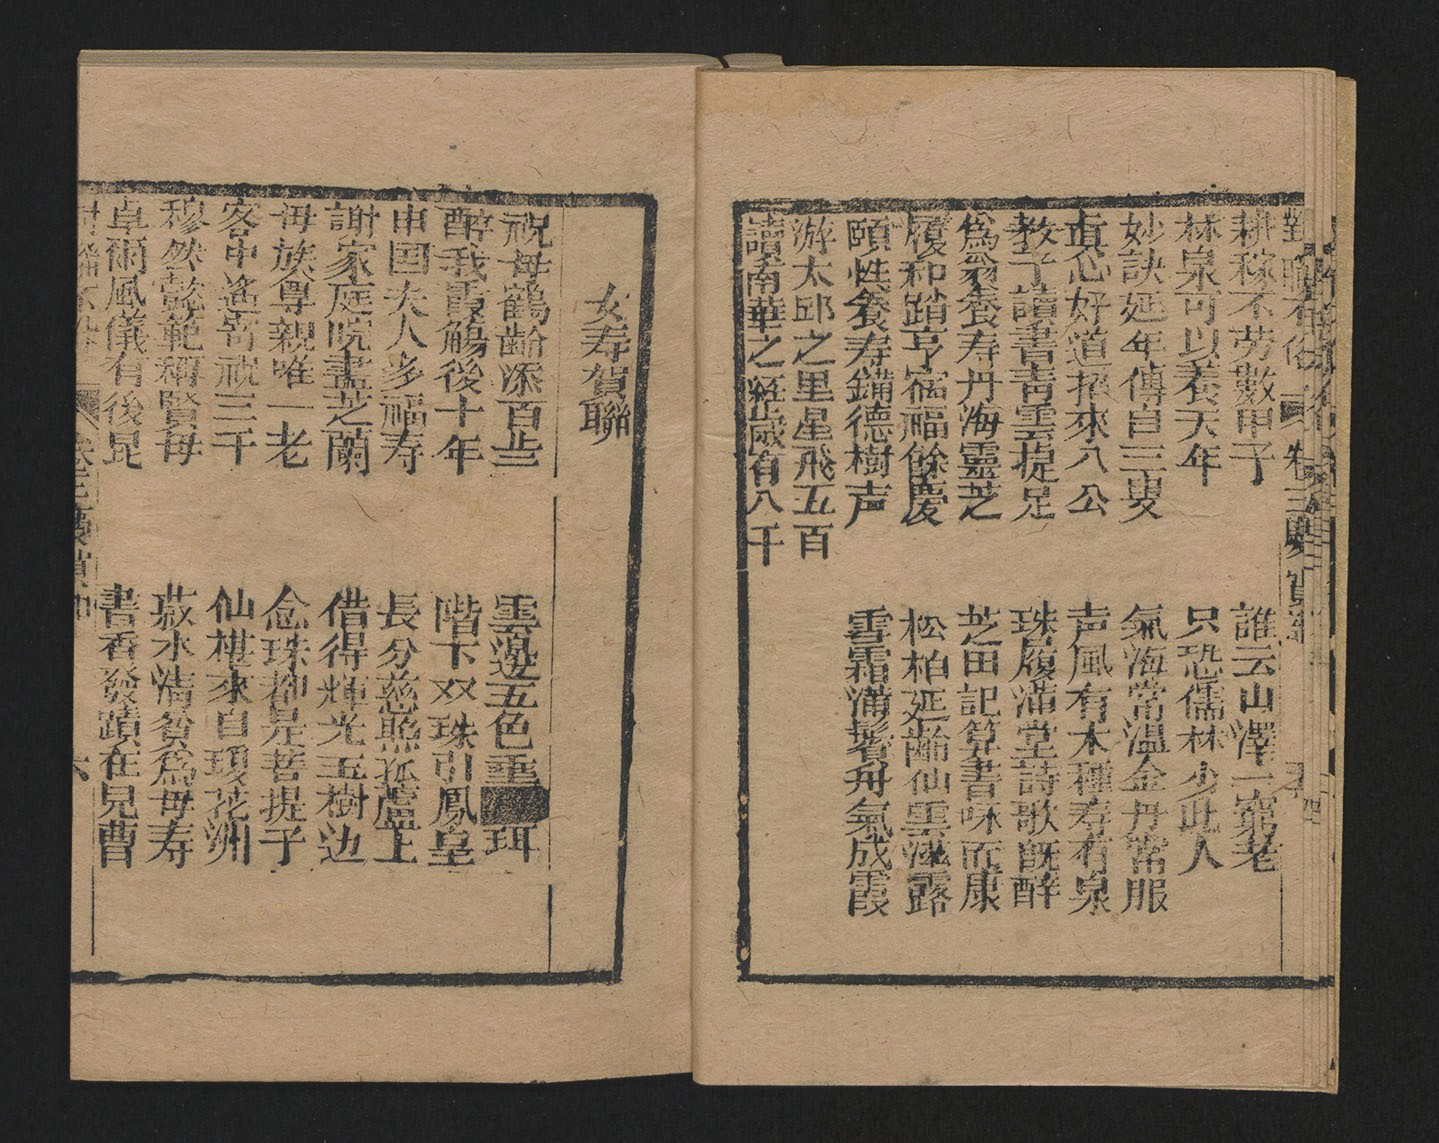 對聯不俗 卷三
耕稼不劳數甲子 誰云山澤一窮老
林泉可以養天年 只恐儒林少此人
妙訣延年傳自三叟 氣海常温金丹常服
真心好道招來八公 声風有木種寿有泉
教子讀書青雲提足 珠履滿堂詩歌既醉
爲翁養寿丹海靈芝 芝田記算書味而康
履和蹈亨宿福餘慶 松柏延齡仙雲滋露
頤性養寿鏽德樹声 雪霜滿鬢舟氣成霞
游太邱之里星飛五百
讀南華之 歲有八千
女寿賀聯
祝母鶴齡添百歲 雲邊五色垂珥
醉我霞觴後十年 階下双珠引鳳皇
申国夫人多福寿 長分慈 狐 上
謝家庭院盡芝蘭 借得輝光玉樹边
母族尊親唯一老 念珠都是菩提子
客中遙寄祝三千 仙 來自瓊花洲
穆然懿範稱賢母 菽水清貧爲母寿
卓爾風儀有後昆 書香發蹟在兒曹